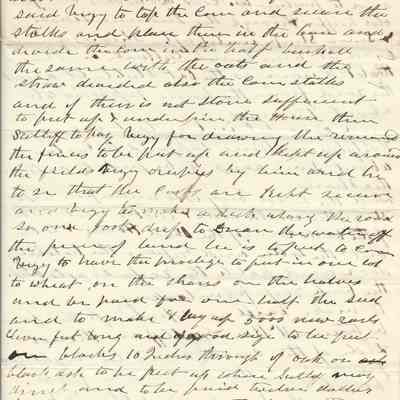 said Vezy to top the Corn and secure the
stalks and place them in the barn and
divide the Corn in the half bushell
the same with the oats and the
straw divided also the Corn stalks
and if there is not Stone sufficient
to put up & underpin the House then
to pay Vezy for drawing the
the fences to be put up and kept up around
the fields Vezy occupies by him and he
to se that the are kept secure
and Vezy to make a ditch along the road
so one foot deep to Drain the water off
the piece of land he is to put to
Vezy to have the privilege to put in one lot
to wheat on the shares on the halves
and be paid for one half the Seed
and to make & lay up 5000 new rails
Eleven feet long and of good size to be put
on blocks 10 Inches through of oak or
black ash to be put up where held may
direct and to be paid twelve dollars